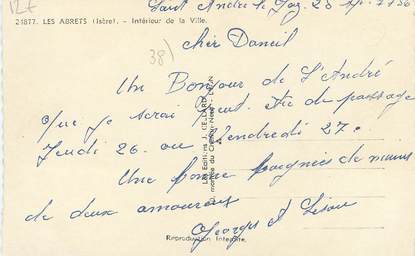 Saint André le Gaz 23
21877. LES ABRETS (Isère). - Intérieur de la Ville.
38)
cher Daniel
Un Bonjour de St André
que je serai peut être de passage
Jeudi 26 ou Vendredi 27.
Une bonne poignées de mains
de deux amoureux
Georges et
Les Editions J. CELLARD
Reproduction Interdite.